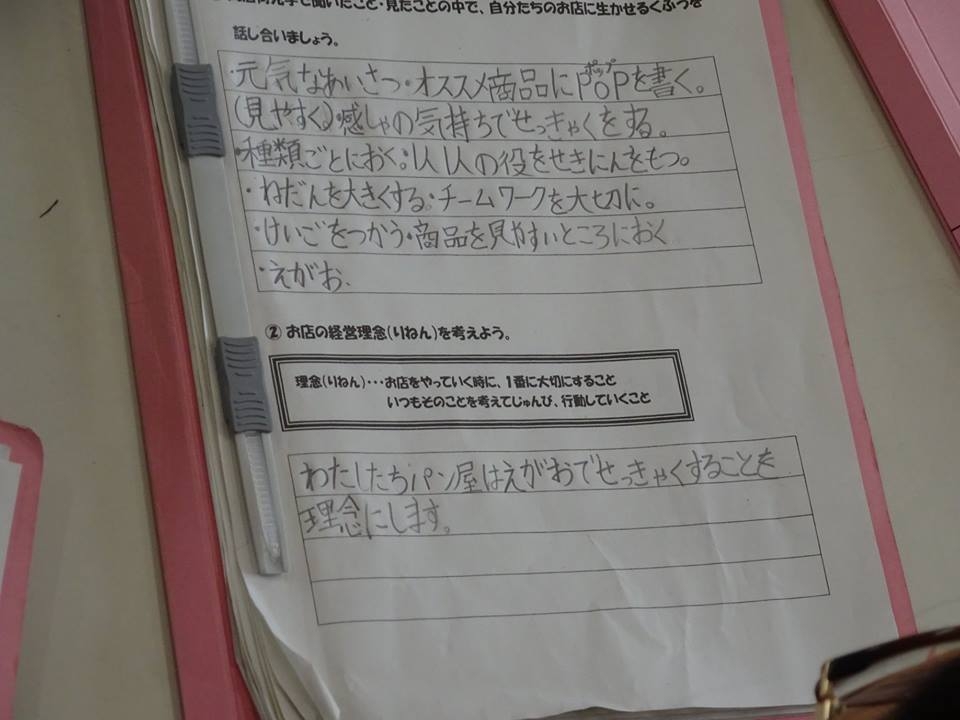 見学で聞いたこと・見たことの中で、自分たちのお店に生かせるくふうを
話し合いましょう。
・元気なあいさつ・オススメ商品にPOPを書く。
ポップ
(見やすく)・感しゃの気持ちでせっきゃくをする。
・種類ごとにおく。・1人1人の役をせきにんをもつ。
・ねだんを大きくする・チームワークを大切に。
・けいごをつかう・商品を見やすいところにおく
・えがお、
② お店の経営理念(りねん)を考えよう。
理念(りねん)・・・お店をやっていく時に、1番に大切にすること
いつもそのことを考えてじゅんび、行動していくこと
わたしたちパン屋はえがおでせっきゃくすることを
理念にします。